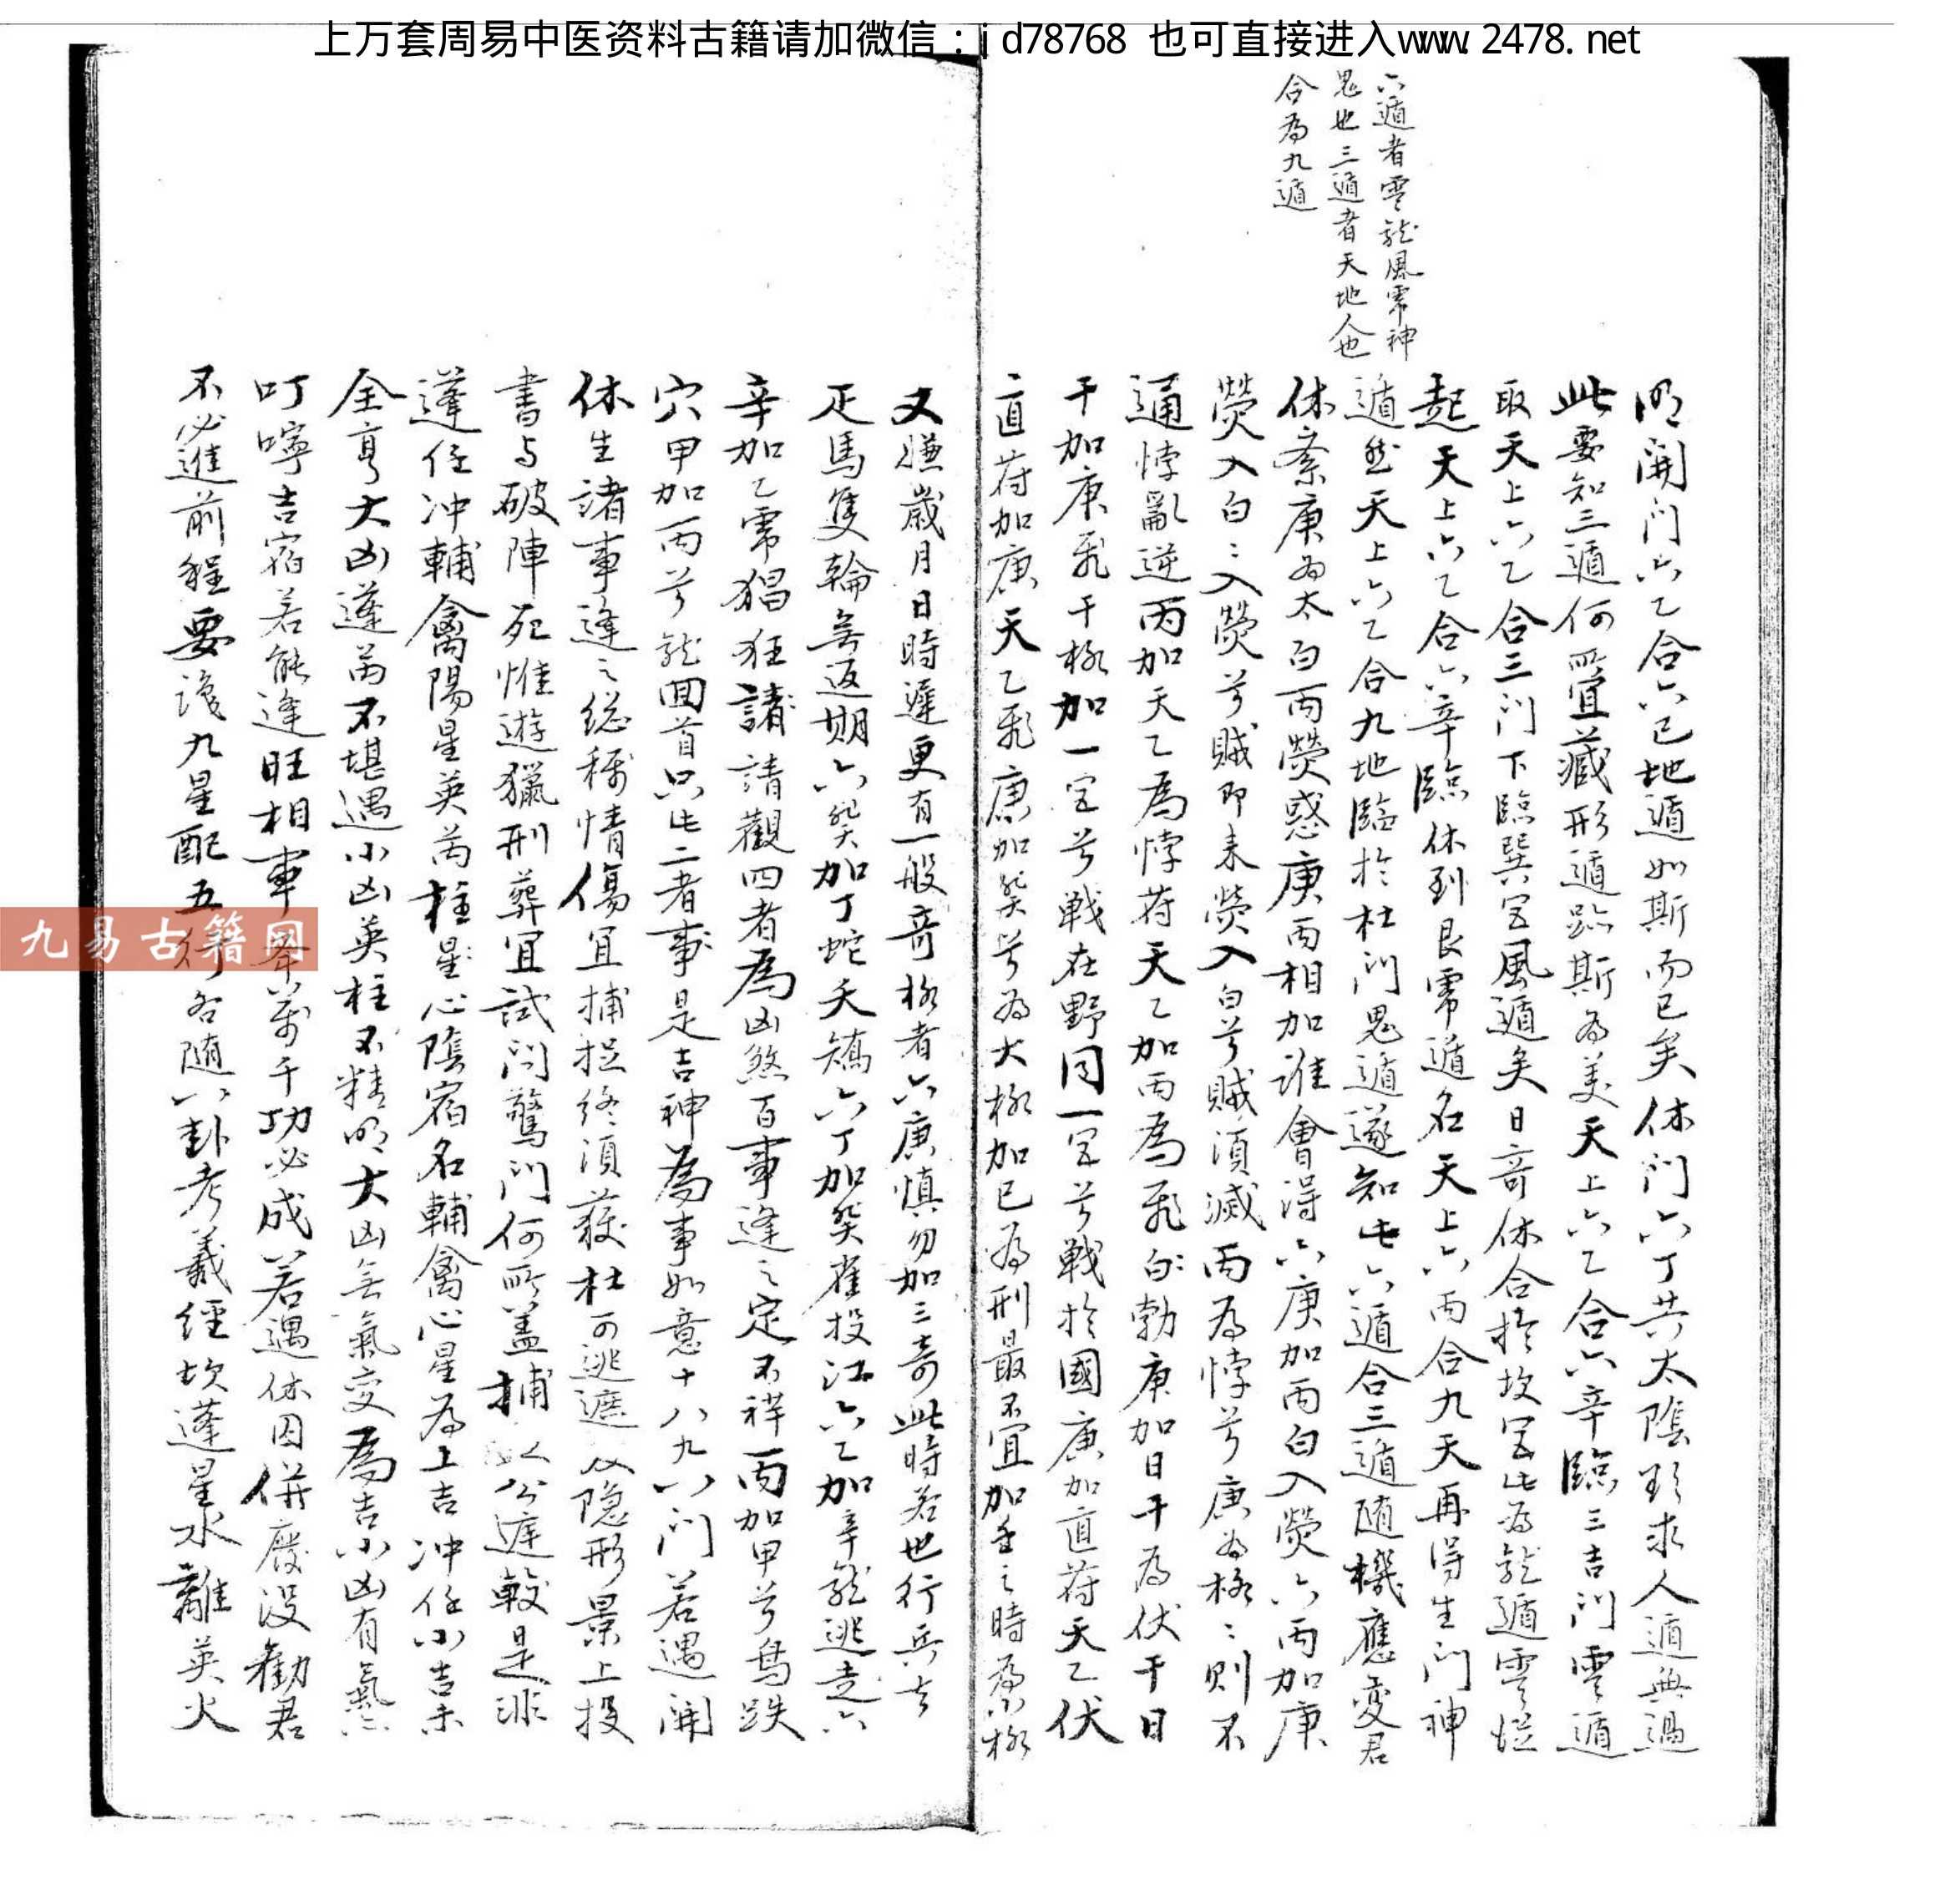 上万套周易中医资料古籍请加微信：jd78768 也可直接进入www.2478.net
六遁者雲龍風虎神
鬼也三遁者天地人也
合為九遁
明開门六乙合六己地遁如斯而已矣休门六丁共太陰欲求人遁無過
此要知三遁何所宜藏形遁跡斯為美天上六乙合六辛臨三吉门雲遁
取天上六乙合三门下臨巽宫風遁矣日奇休合於坎宫此為龍遁雲從
起天上六乙合六辛臨休到艮虎遁名天上六丙合九天再得生门神
遁然天上六乙合九地臨於杜门鬼遁遂知此六遁合三遁随機應变君
休紊庚為太白丙熒惑庚丙相加谁會得六庚加丙白入熒六丙加庚
熒入白白入熒兮賊即来熒入白兮賊須滅丙為悖兮庚為格格則不
通悖亂逆丙加天乙為悖符天乙加丙為飛勃庚加日干為伏干日
干加庚飛干格加一宫兮戦在野同一宫兮戦於國庚加直符天乙伏
直符加庚天乙飛庚加癸兮為大格加己為刑最不宜加壬之時為小格
又嫌歲月日時遲更有一般奇格者六庚慎勿加三奇此時若也行兵去
疋馬隻輪無返期六癸加丁蛇夭矯六丁加癸雀投江六乙加辛龍逃走六
辛加乙虎猖狂請觀四者為凶煞百事逢之定不祥丙加甲兮鳥跌
穴甲加丙兮龍回首只此二者事是吉神為事如意十八九八门若遇開
休生諸事逢之総稱情傷宜捕捉终須獲杜可逃遮及隐形景上投
書与破陣死惟遊獵刑葬宜試问驚门何所盖捕公遮較是非
蓬任冲輔禽陽星英芮柱星心陰宿名輔禽心星為上吉冲任小吉未
全亨大凶蓬芮不堪遇小凶英柱不精明大凶無氣变為吉小凶有氣
叮嚀吉宿若能逢旺相事举萬千功必成若遇休囚併廢没勸君
不必進前程要識九星配五行各随八卦考羲經坎蓬星水離英火
九易古籍网